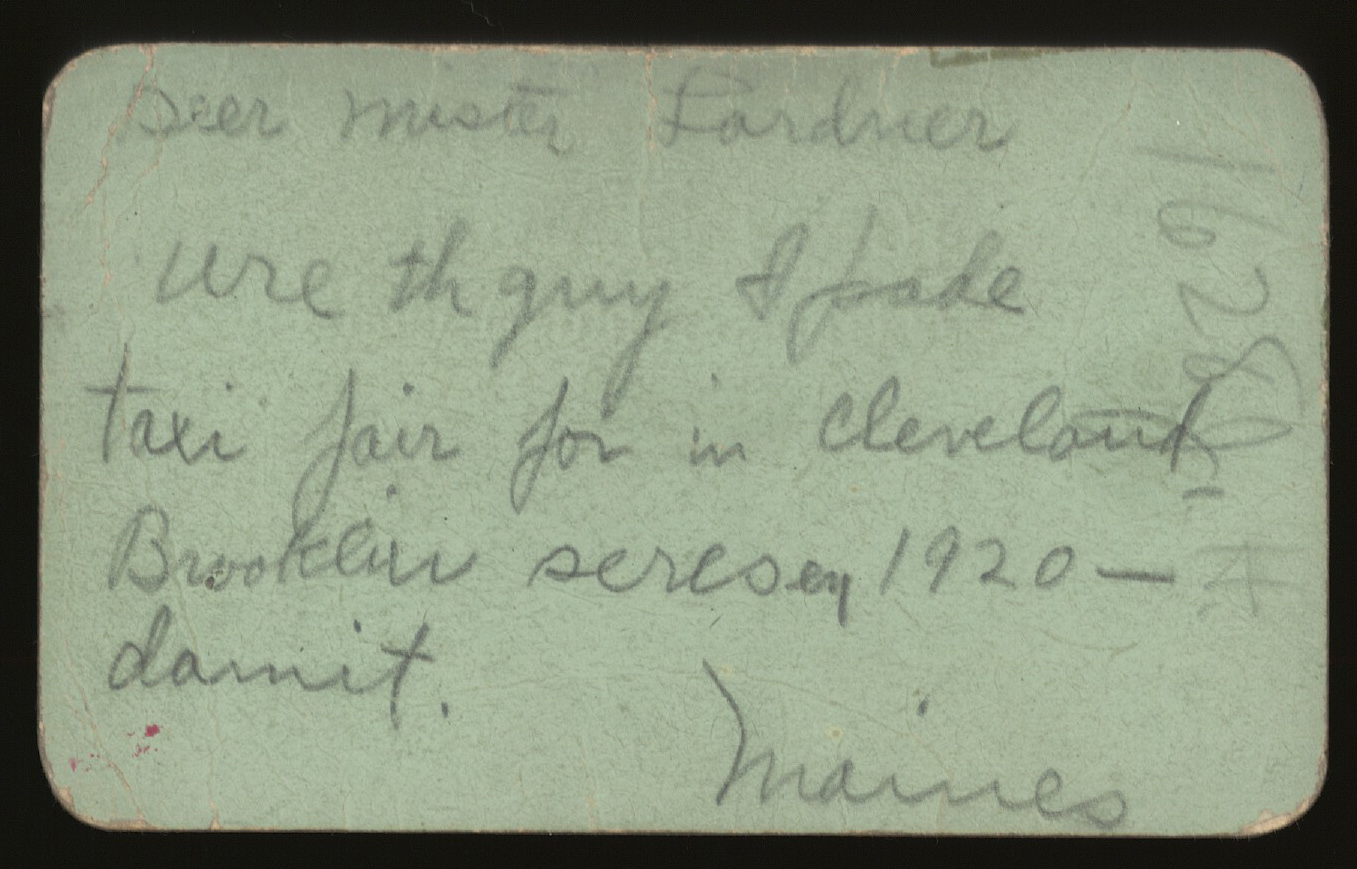 Deer Mister Lardner
Ure th guy I pade
taxi fair for in Cleveland
Brooklin seres en 1920 —
damit.
Maines